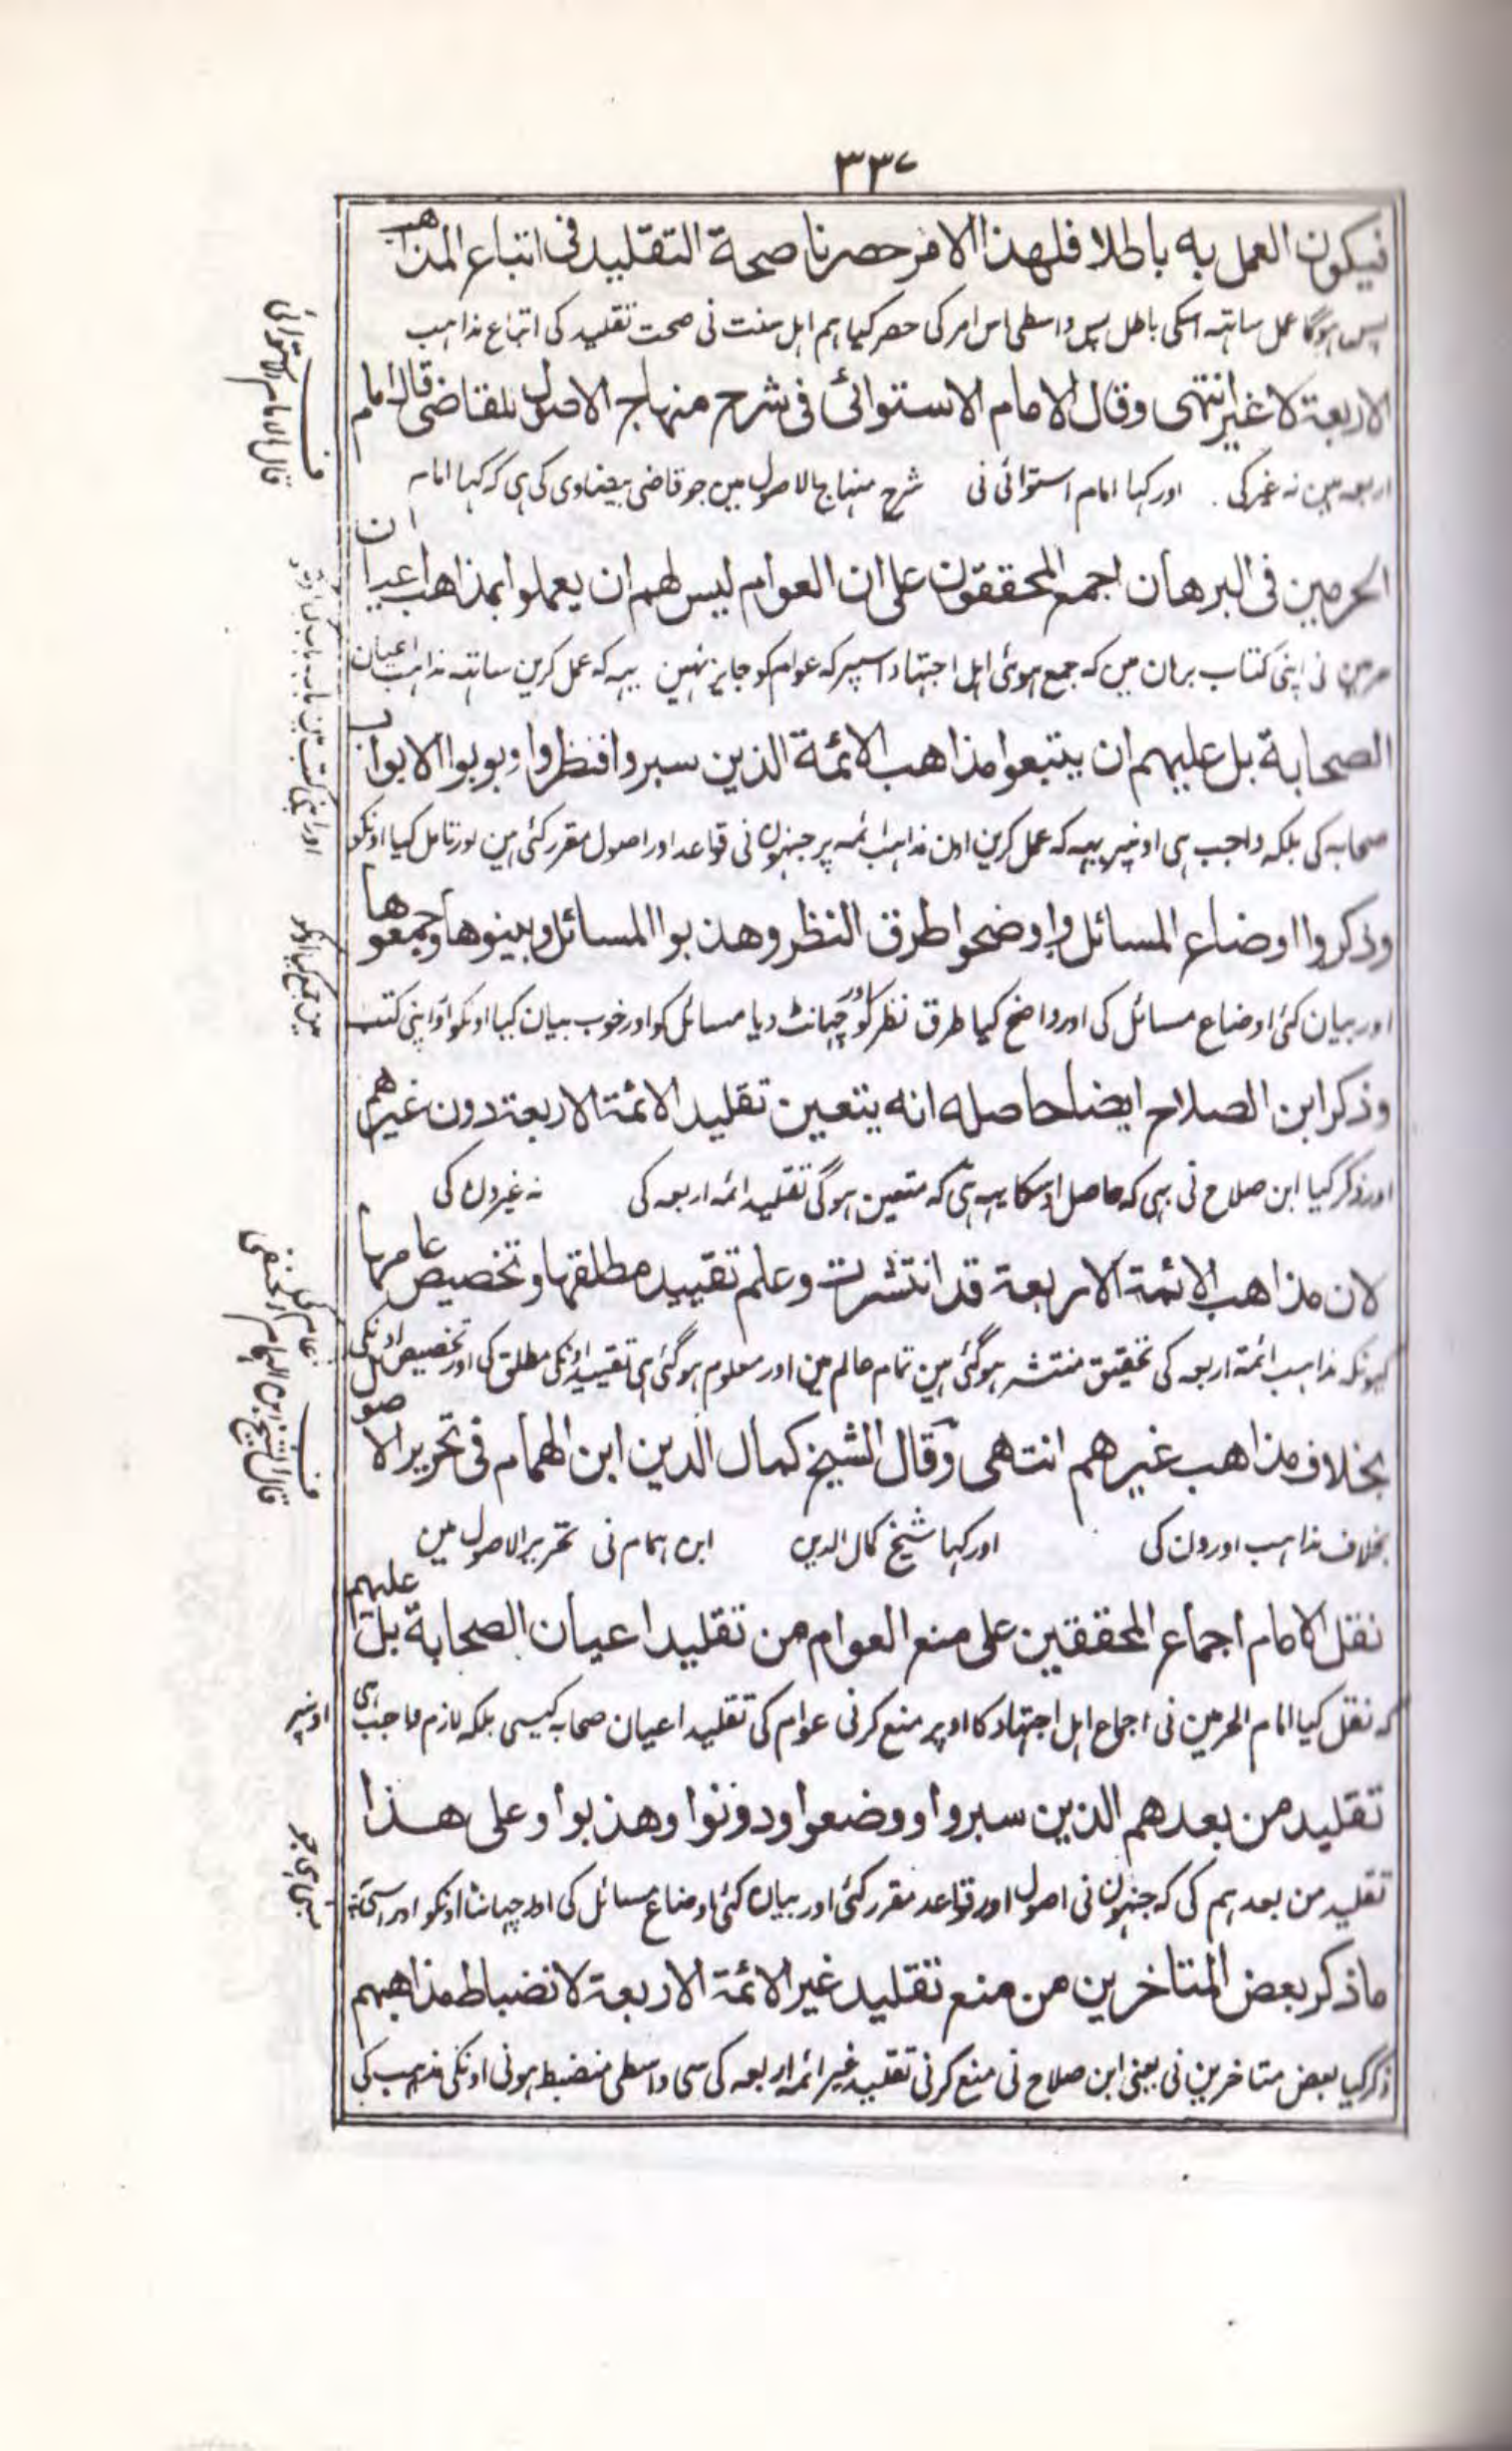 ۳۳۷
فيكون العمل به باطلا فلهذا الامر حصرنا صحة التقليد فى اتباع المذاهب
پس ہوگا عمل ساتہہ اسکی باطل پس واسطی اس امر کی حصر کیا ہم اہل سنت نی صحت تقلید کی اتباع مذاہب
الاربعة لا غير انتهى وقال الامام الاستوائى فى شرح منهاج الاصول للقاضى قال امام
اربعہ مین نہ غیر کی اور کہا امام استوائی نی شرح منہاج الاصول مین جو قاضی بیضاوی کی ہی کہ کہا امام
الحرمين فى البرهان اجمع المحققون على ان العوام ليس لهم ان يعملوا بمذاهب اعيان
حرمین نی اپنی کتاب برہان مین کہ جمع ہوئی اہل اجتہاد اسپر کہ عوام کو جایز نہین یہہ کہ عمل کرین ساتہہ مذاہب اعیان
الصحابة بل عليهم ان يتبعوا مذاهب الائمة الذين سبروا فنظروا وبوبوا الابواب
صحابہ کی بلکہ واجب ہی اونپر یہہ کہ عمل کرین اون مذاہب ائمہ پر جنہون نی قواعد اور اصول مقرر کئی ہین اور تامل کیا اونکو
وذكروا اوضاع المسائل واوضحوا طرق النظر وهذبوا المسائل وبينوها وجمعوها
اور بیان کئی اوضاع مسائل کی اور واضح کیا طرق نظر کو اور چہانٹ دیا مسائل کو اور خوب بیان کیا اونکو اور اپنی کتب
وذكر ابن الصلاح ايضا حاصله انه يتعين تقليد الائمة الاربعة دون غيرهم
اور ذکر کیا ابن صلاح نی بہی کہ حاصل اوسکا یہہ ہی کہ متعین ہوگی تقلید ائمہ اربعہ کی نہ غیرون کی
لان مذاهب الائمة الاربعة قد انتشرت وعلم تقييد مطلقها وتخصيص عامها
کیونکہ مذاہب ائمہ اربعہ کی تحقیق منتشر ہوگئی ہین تمام عالم مین اور معلوم ہوگئی ہی تقیید اونکی مطلق کی اور تخصیص اونکی
بخلاف مذاهب غيرهم انتهى وقال الشيخ كمال الدين ابن الهمام فى تحرير الاصول
بخلاف مذاہب اورون کی اور کہا شیخ کمال الدین ابن ہمام نی تحریر الاصول مین
نقل الامام اجماع المحققين على منع العوام من تقليد اعيان الصحابة بل عليهم
کہ نقل کیا امام الحرمین نی اجماع اہل اجتہاد کا اوپر منع کرنی عوام کی تقلید اعیان صحابہ کیسی بلکہ لازم واجب ہی
تقليد من بعدهم الذين سبروا ووضعوا ودونوا وهذبوا وعلى هذا
تقلید من بعدہم کی کہ جنہون نی اصول اور قواعد مقرر کئی اور بیان کئی اوضاع مسائل کی اور چہانٹا اونکو اور اسی
ما ذكر بعض المتاخرين من منع تقليد غير الائمة الاربعة لانضباط مذاهبهم
ذکر کیا بعض متاخرین نی یعنی ابن صلاح نی منع کرنی تقلید غیر ائمہ اربعہ کی سی واسطی منضبط ہونی اونکی مذہب کی
قال الامام الاستوائی
مین جمع کیا اونکو
عام کی
قال الشیخ ابن الہمام الحنفی
اونپر